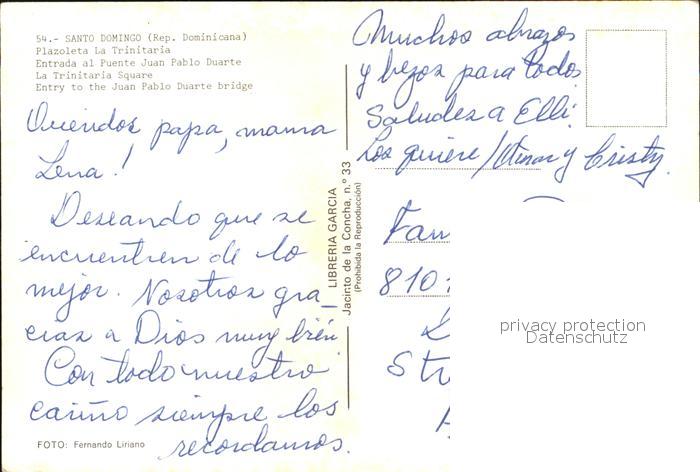 54.- SANTO DOMINGO (Rep. Dominicana)
Plazoleta La Trinitaria
Entrada al Puente Juan Pablo Duarte
La Trinitaria Square
Entry to the Juan Pablo Duarte bridge
Queridos papa, mama
Lena!
Deseando que se
encuentren de lo
mejor. Nosotros gra_
cias a Dios muy bién
Con todo nuestro
cariño siempre los
recordamos.
FOTO: Fernando Liriano
LIBRERIA GARCIA
Jacinto de la Concha, n.º 33
(Prohibida la Reproducción)
Muchos abrazos
y bezos para todos
Saludes a Elli.
Los quiere / y Cristy.
Fam
810
Str
privacy protection
Datenschutz